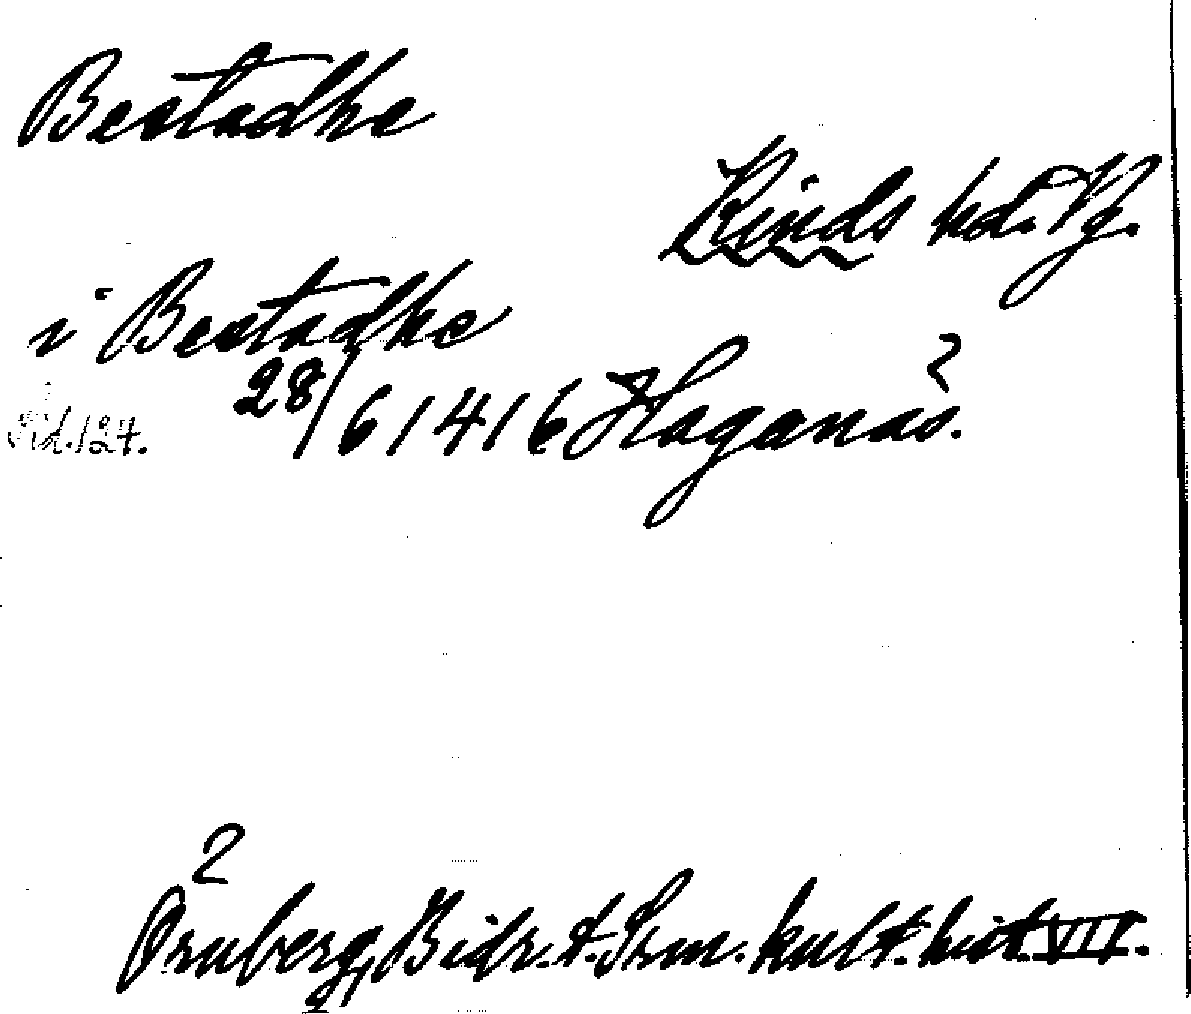 Bestadhe
Kinds hd. Vg.
i Bestadhe
28/6 1416 Haganäs.
Sid. 127.
2
Örnberg, Bidr. t. Srm. kult. hist. VII.